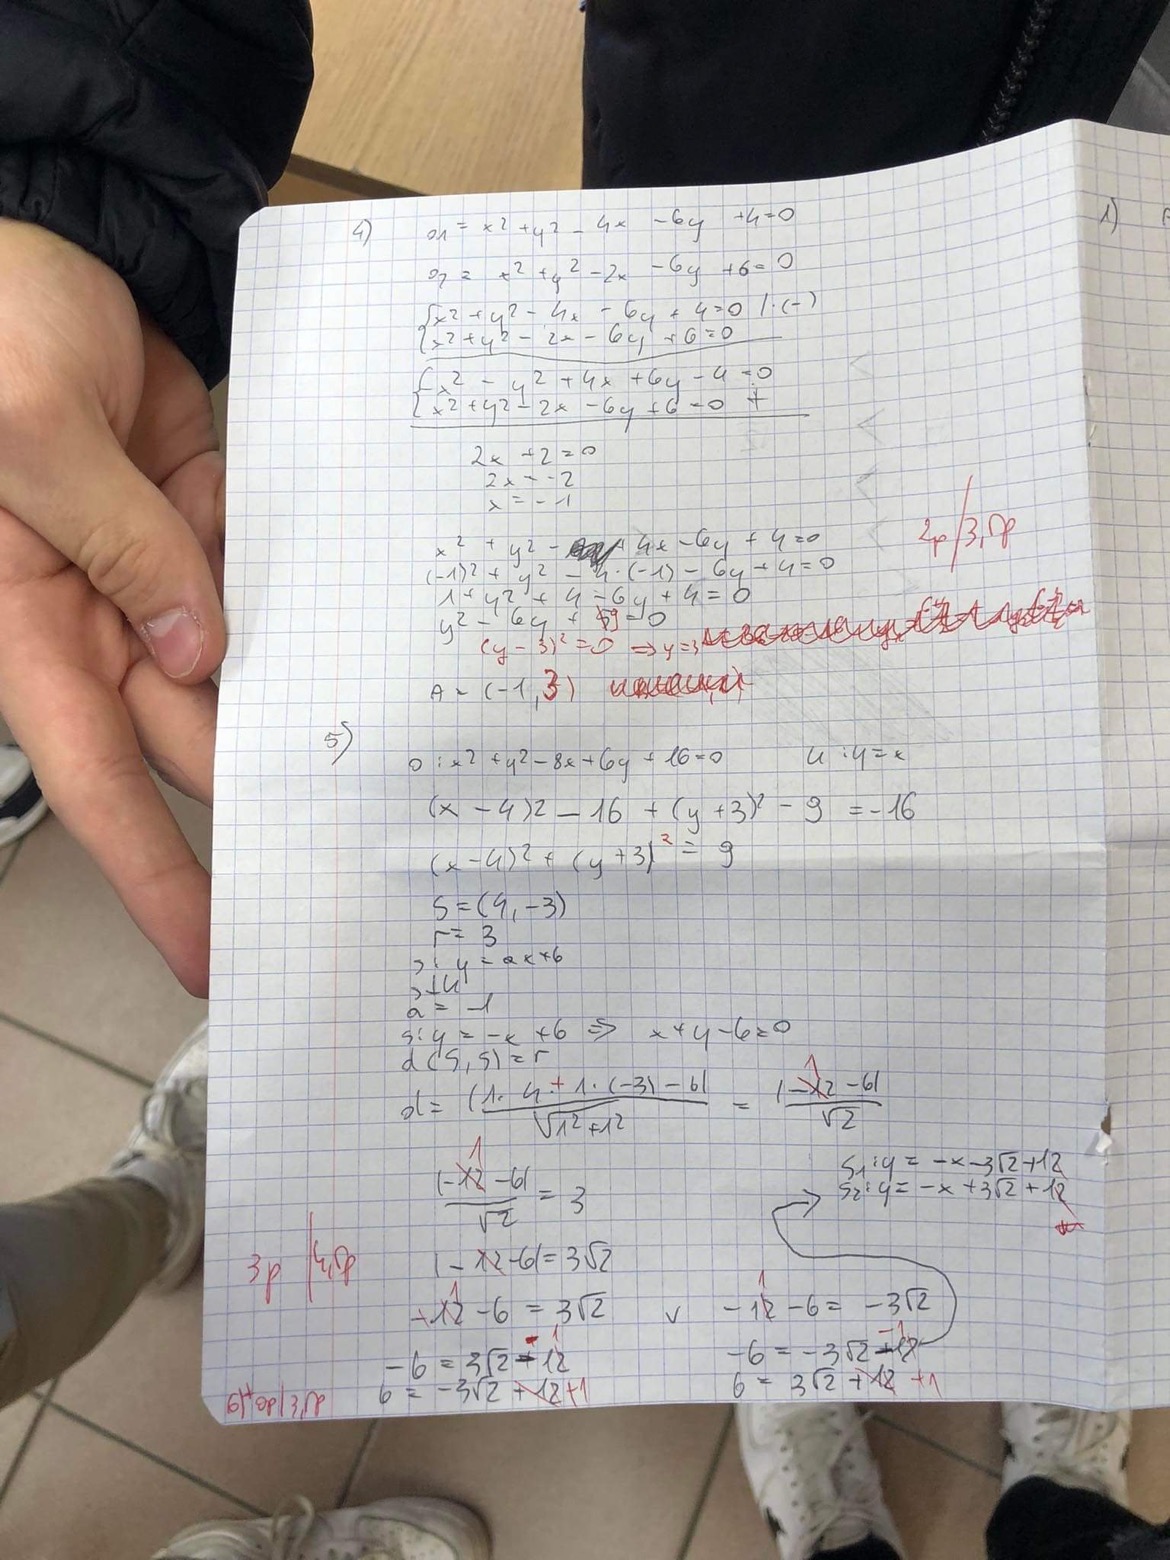 4) o1 = x² + y² - 4x - 6y + 4 = 0
o2 = x² + y² - 2x - 6y + 6 = 0
{x² + y² - 4x - 6y + 4 = 0 /·(-)
{x² + y² - 2x - 6y + 6 = 0
{-x² - y² + 4x + 6y - 4 = 0
{x² + y² - 2x - 6y + 6 = 0 +
2x + 2 = 0
2x = -2
x = -1
x² + y² - 4x - 6y + 4 = 0
(-1)² + y² - 4·(-1) - 6y + 4 = 0
1 + y² + 4 - 6y + 4 = 0
y² - 6y + 9 = 0
(y - 3)² = 0 ⇒ y = 3
A = (-1, 3)
1)
5) o: x² + y² - 8x + 6y + 16 = 0
(x - 4)² - 16 + (y + 3)² - 9 = -16
(x - 4)² + (y + 3)² = 9
S = (4, -3)
r = 3
s: y = ax + b
a = -1
s: y = -x + b ⇒ x + y - b = 0
d(S, s) = r
d = |1·4 + 1·(-3) - b| / √1² + 1² = |1 - b| / √2
|1 - b| / √2 = 3
s1: y = -x - 3√2 + 12
s2: y = -x + 3√2 + 12
3p
|1 - b| = 3√2
1 - b = 3√2 v 1 - b = -3√2
-b = 3√2 - 1 -b = -3√2 - 1
b = -3√2 + 1 b = 3√2 + 1